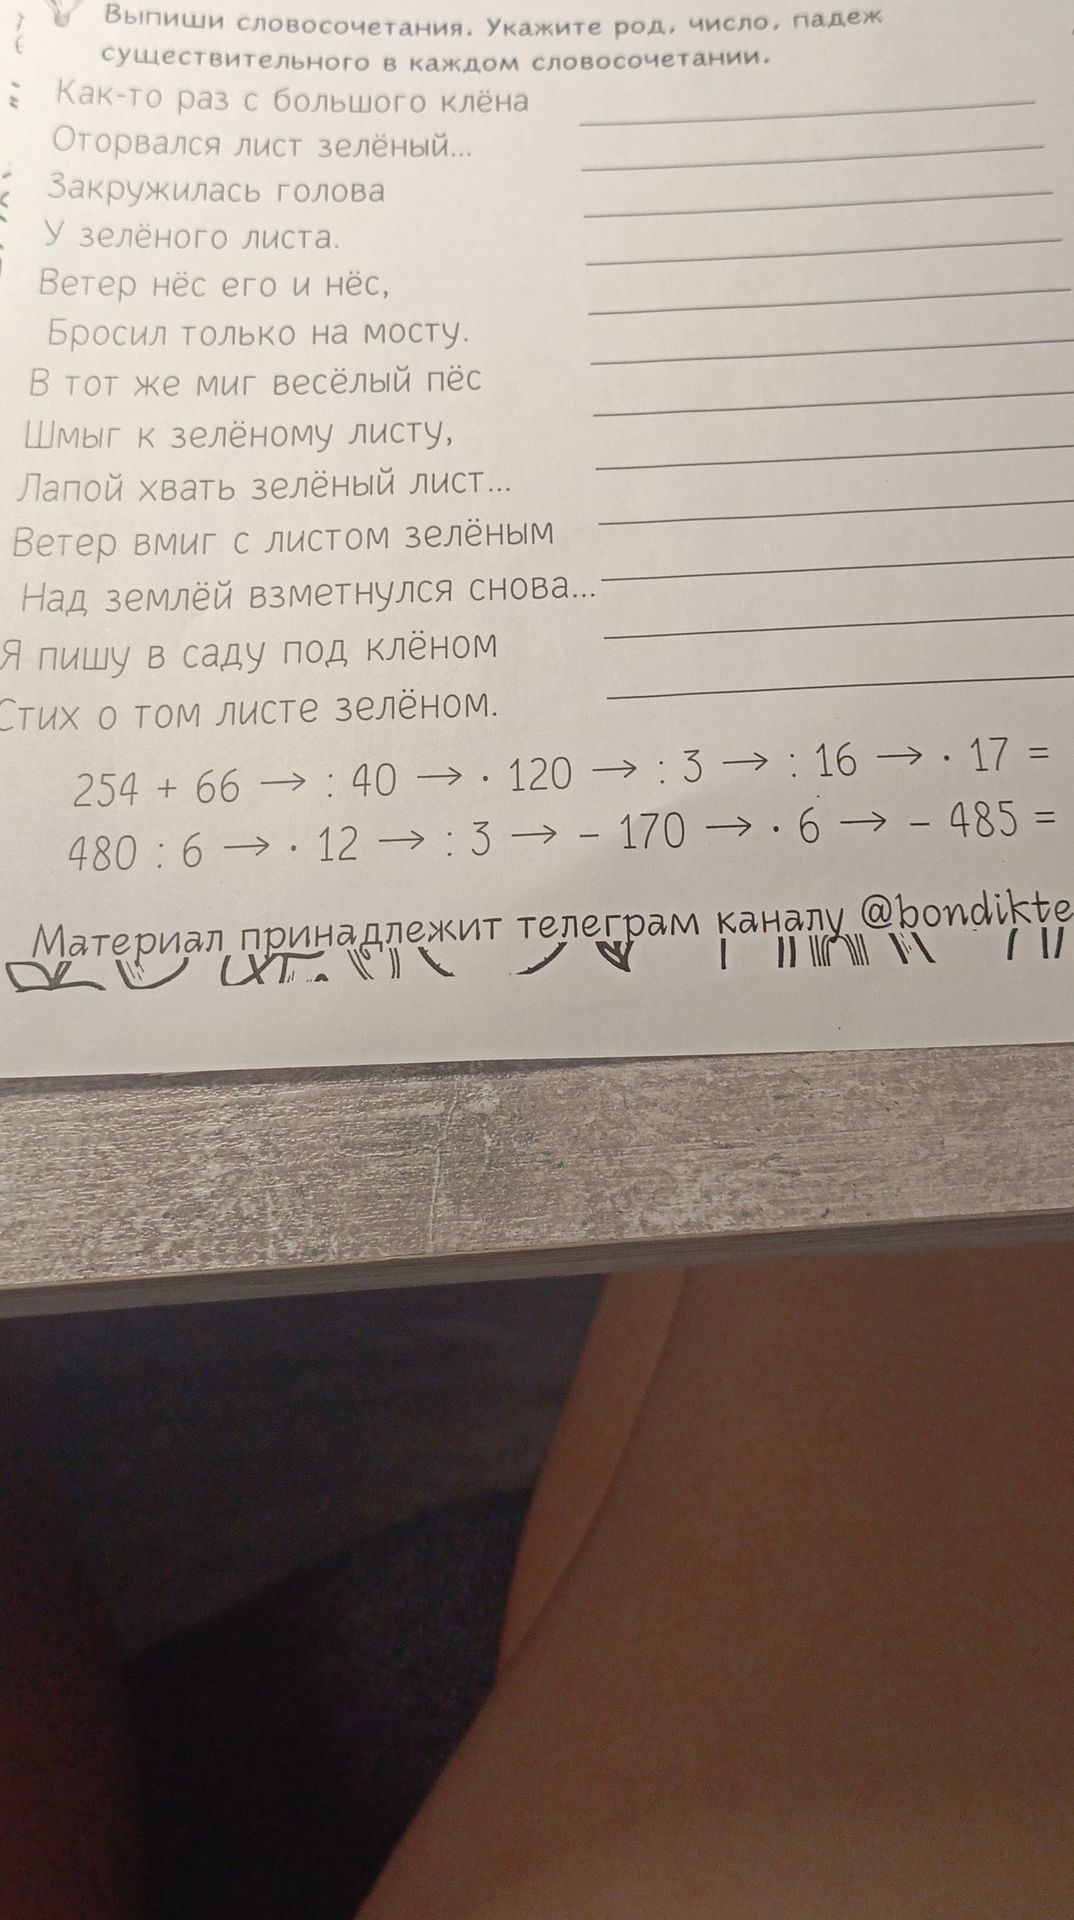 Выпиши словосочетания. Укажите род, число, падеж
существительного в каждом словосочетании.
Как-то раз с большого клёна
Оторвался лист зелёный...
Закружилась голова
У зелёного листа.
Ветер нёс его и нёс,
Бросил только на мосту.
В тот же миг весёлый пёс
Шмыг к зелёному листу,
Лапой хвать зелёный лист...
Ветер вмиг с листом зелёным
Над землёй взметнулся снова...
Я пишу в саду под клёном
Стих о том листе зелёном.
254 + 66 → : 40 → · 120 → : 3 → : 16 → · 17 =
480 : 6 → · 12 → : 3 → – 170 → · 6 → – 485 =
Материал принадлежит телеграм каналу @bondikte